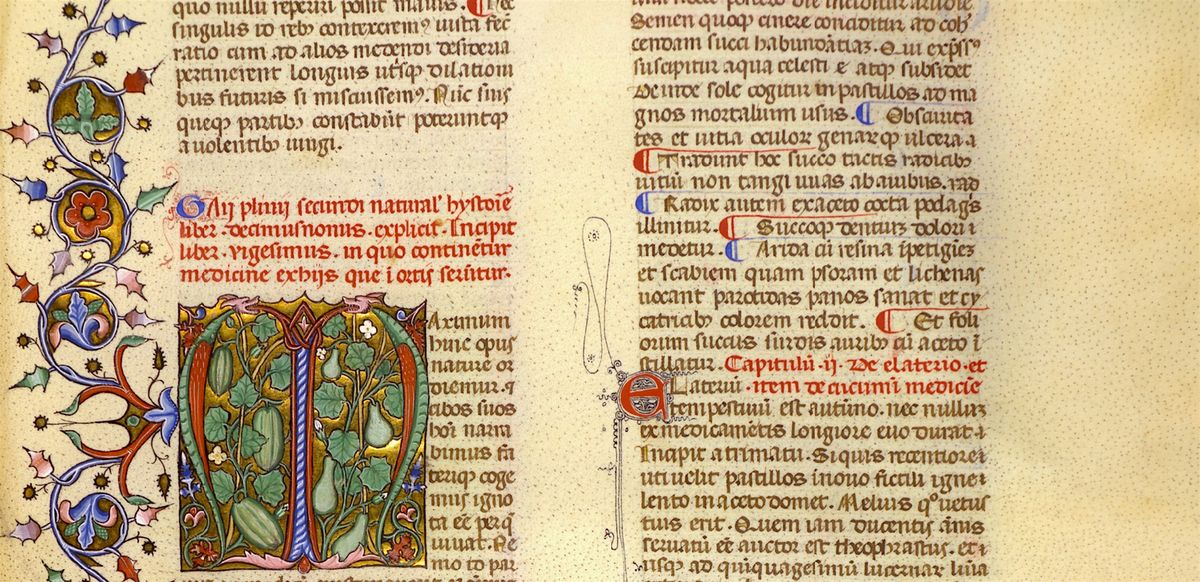 quo nullu reperiri possit maius. ¶ Nec
singulis īo rebꝰ contexeremꝰ iusta fec̄
ratio cum ad alios medendi desideria
pertinerent longius utsqꝫ dilationi
bus futuris si miscuissemꝰ. Nūc suis
queqꝫ partibꝰ constabūt poteruntqꝫ
a volentibꝰ iungi.
Gaii plinii secundi natural' hystoīe
liber · decimusnonus · explicit · Incipit
liber · vigesimus · in quo continētur
medicine exhiis que ī ortis serūtur ·
Maximum
huic opus
nature or
diemur · ⁊
cibos suos
hoī narra
bimus fa
teriqꝫ coge
mus igno
ta eē perq̄
uiuat. Ne
mo īo par
Semen quoqꝫ cinere conditur ad coh
cendam succi habundātiaꝫ. Qui expssꝰ
suscipitur aqua celesti ē atqꝫ subsidet
Deinde sole cogitur in pastillos ad ma
gnos mortalium usus. ¶ Obscurita
tes et uitia oculoꝝ genarqꝫ ulcera ·
¶ Tradunt hoc succo tactis radicibꝰ
uitiū non tangi uuas ab auibus. rad
¶ Radix autem ex aceto cocta podagꝭ
illinitur. ¶ Succoqꝫ dentiuꝫ dolori ī
medetur. ¶ Arida cū resina īpetiginēꝫ
et scabiem quam psoram et lichenas
uocant parotidas panos sanat et cy
catricibꝰ colorem reddit. ¶ Et foli
orum succus surdis auribꝰ cū aceto ī
stillatur. Capitulū · ij · De elaterio · et
Elateriū · item de cucumū medicīe
tempestiuū est autūno · nec nulluꝫ
ex medicamētis longiore euo durat ·
Incipit a trimatu · Si quis recentiorei
uti uelit pastillos in nouo fictili igne
lento in aceto domet. Melius qº uetus
tius erit. Quem iam ducentis ānis
seruatū eē auctor est theophrastus. et
usqꝫ ad quīquagesimū lucernar lūīa